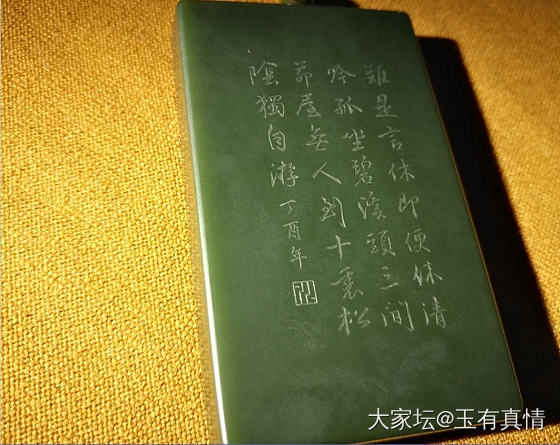 雖是言休即便休清
吟孤坐碧溪頭三間
茆屋無人到十裏松
陰獨自游丁酉年
大家坛@玉有真情